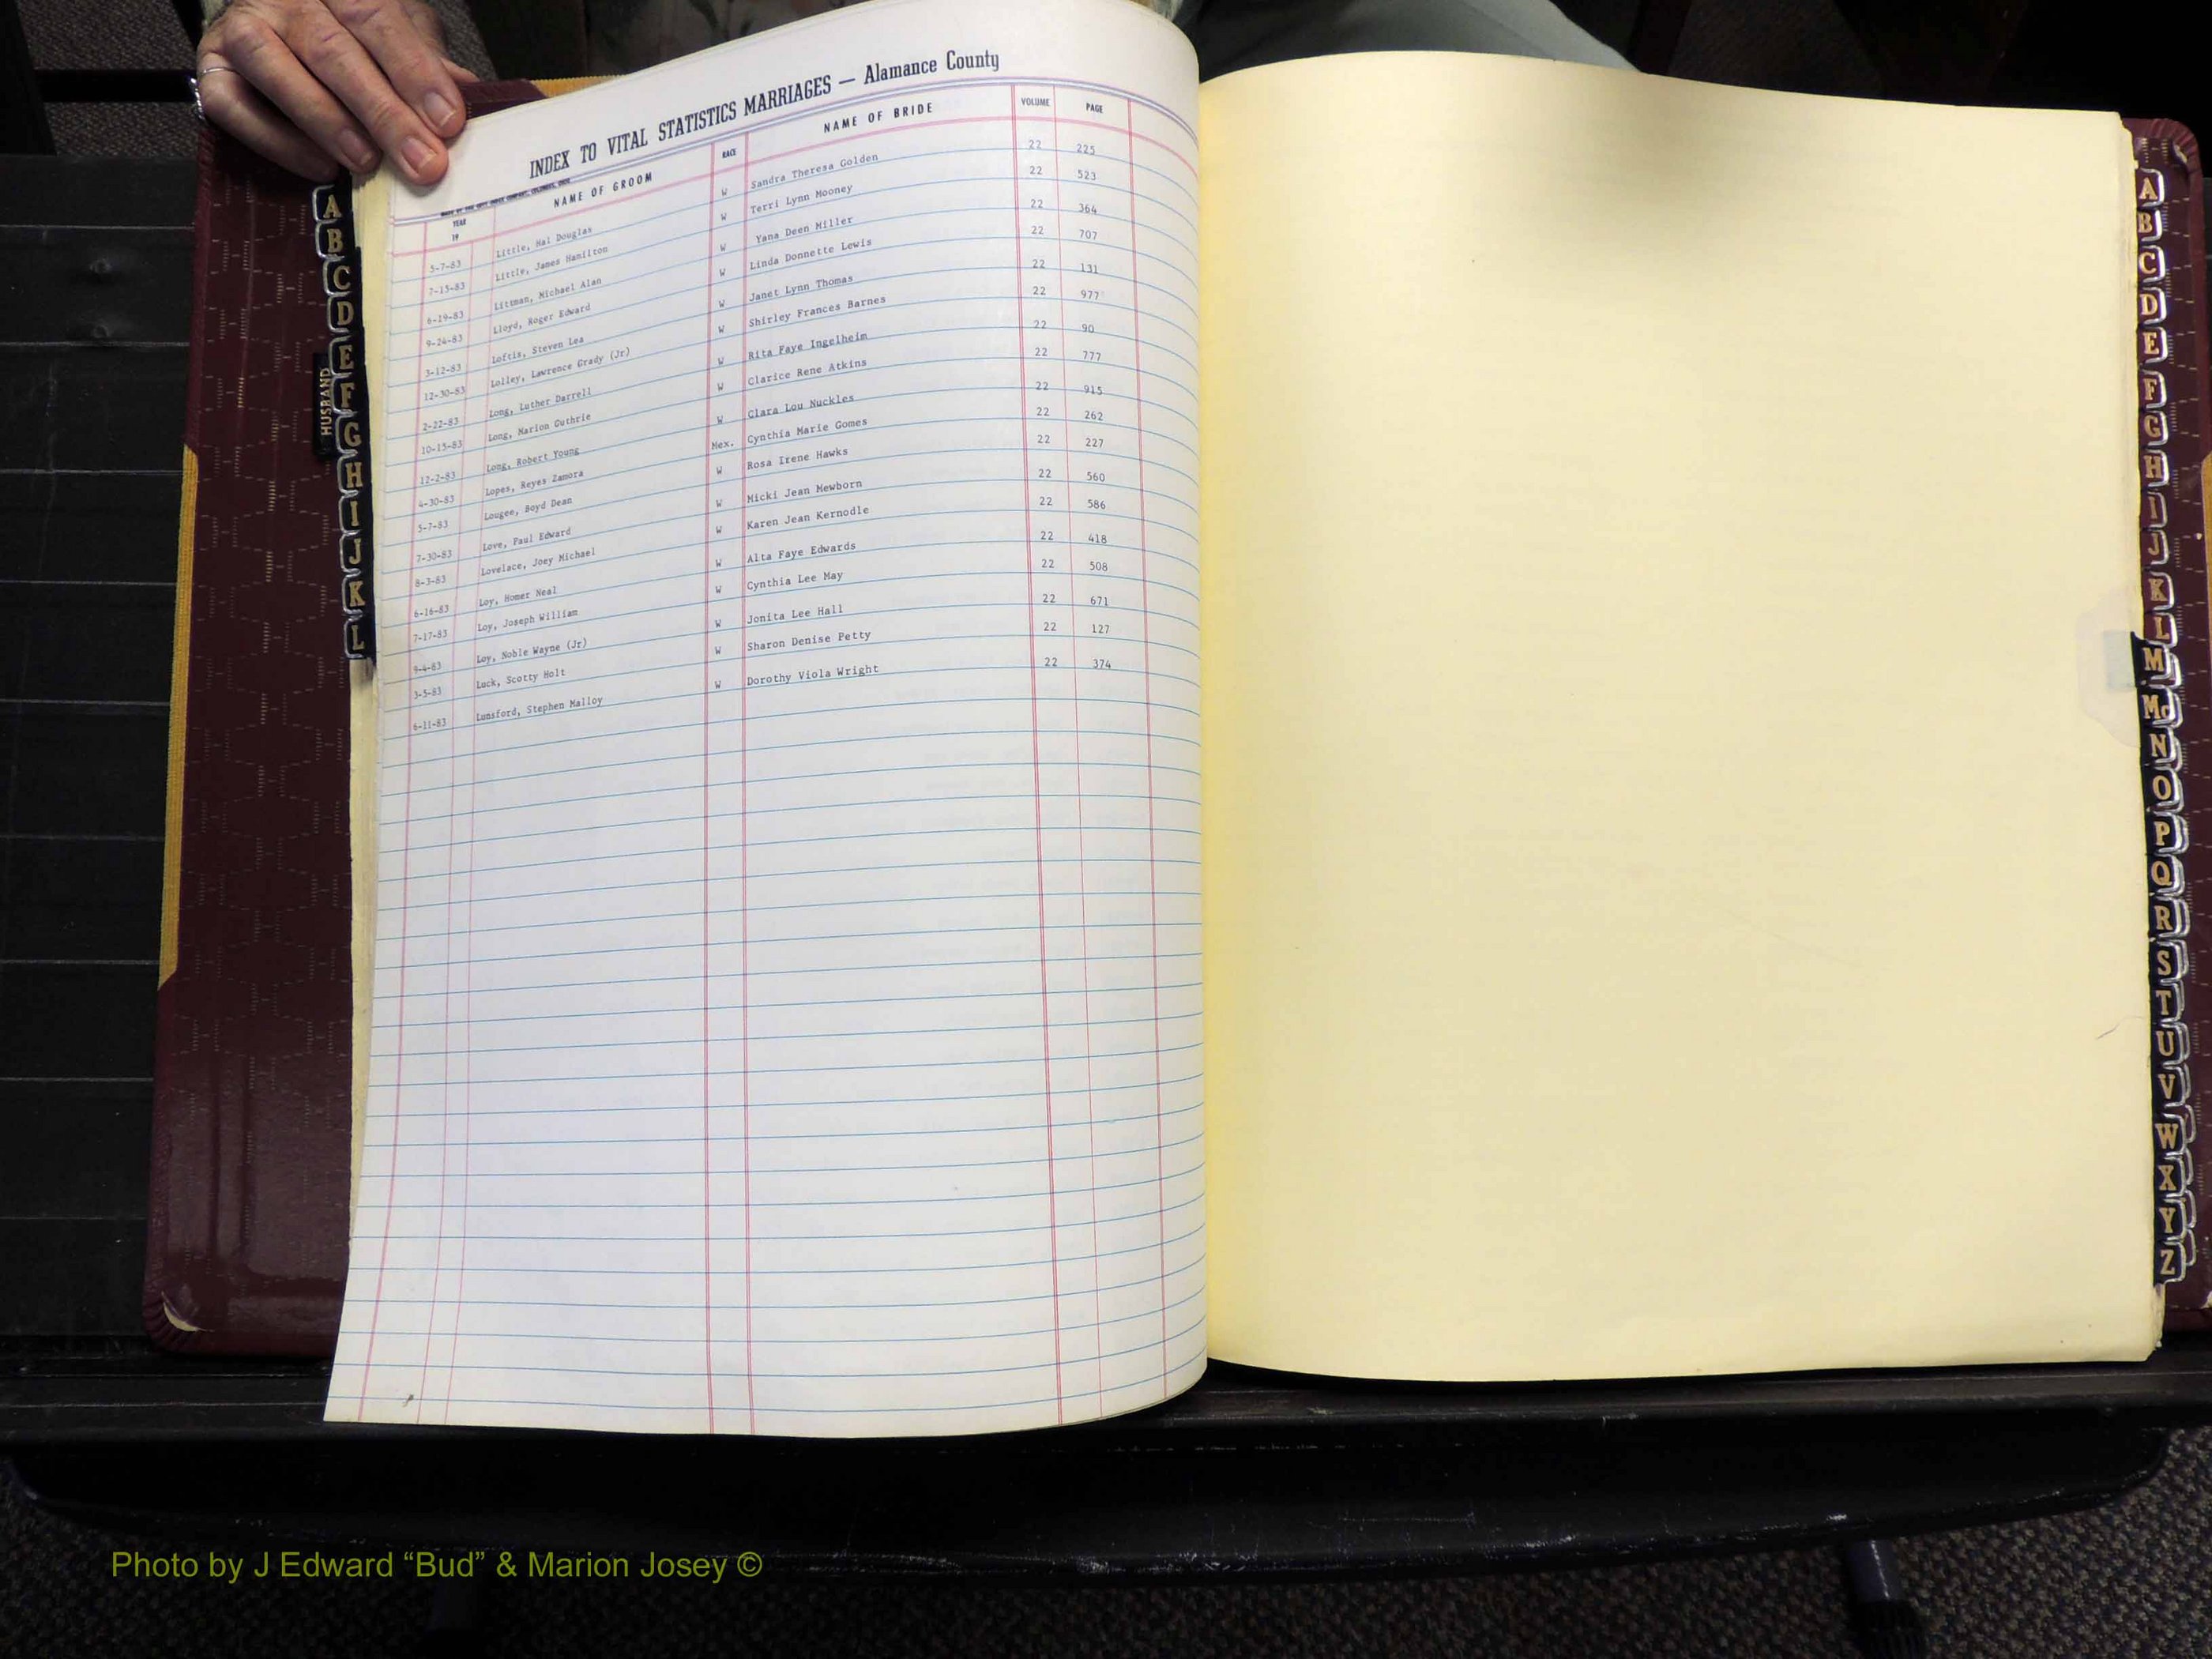 INDEX TO VITAL STATISTICS MARRIAGES — Alamance County
YEAR 19 NAME OF GROOM RACE NAME OF BRIDE VOLUME PAGE
5-7-83 Little, Hal Douglas W Sandra Theresa Golden 22 225
7-15-83 Little, James Hamilton W Terri Lynn Mooney 22 523
6-19-83 Littman, Michael Alan W Yana Deen Miller 22 364
9-24-83 Lloyd, Roger Edward W Linda Donnette Lewis 22 707
3-12-83 Loftis, Steven Lea W Janet Lynn Thomas 22 131
12-30-83 Lolley, Lawrence Grady (Jr) W Shirley Frances Barnes 22 977
2-22-83 Long, Luther Darrell W Rita Faye Ingelheim 22 90
10-15-83 Long, Marion Guthrie W Clarice Rene Atkins 22 777
12-2-83 Long, Robert Young W Clara Lou Nuckles 22 915
4-30-83 Lopes, Reyes Zamora Mex. Cynthia Marie Gomes 22 262
5-7-83 Lougee, Boyd Dean W Rosa Irene Hawks 22 227
7-30-83 Love, Paul Edward W Micki Jean Mewborn 22 560
8-3-83 Lovelace, Joey Michael W Karen Jean Kernodle 22 586
6-16-83 Loy, Homer Neal W Alta Faye Edwards 22 418
7-17-83 Loy, Joseph William W Cynthia Lee May 22 508
9-4-83 Loy, Noble Wayne (Jr) W Jonita Lee Hall 22 671
3-5-83 Luck, Scotty Holt W Sharon Denise Petty 22 127
6-11-83 Lunsford, Stephen Malloy W Dorothy Viola Wright 22 374
HUSBAND
A
B
C
D
E
F
G
H
I
J
K
L
A
B
C
D
E
F
G
H
I
J
K
L
M
Mc
N
O
P
Q
R
S
T
U
V
W
X
Y
Z
Photo by J Edward “Bud” & Marion Josey ©